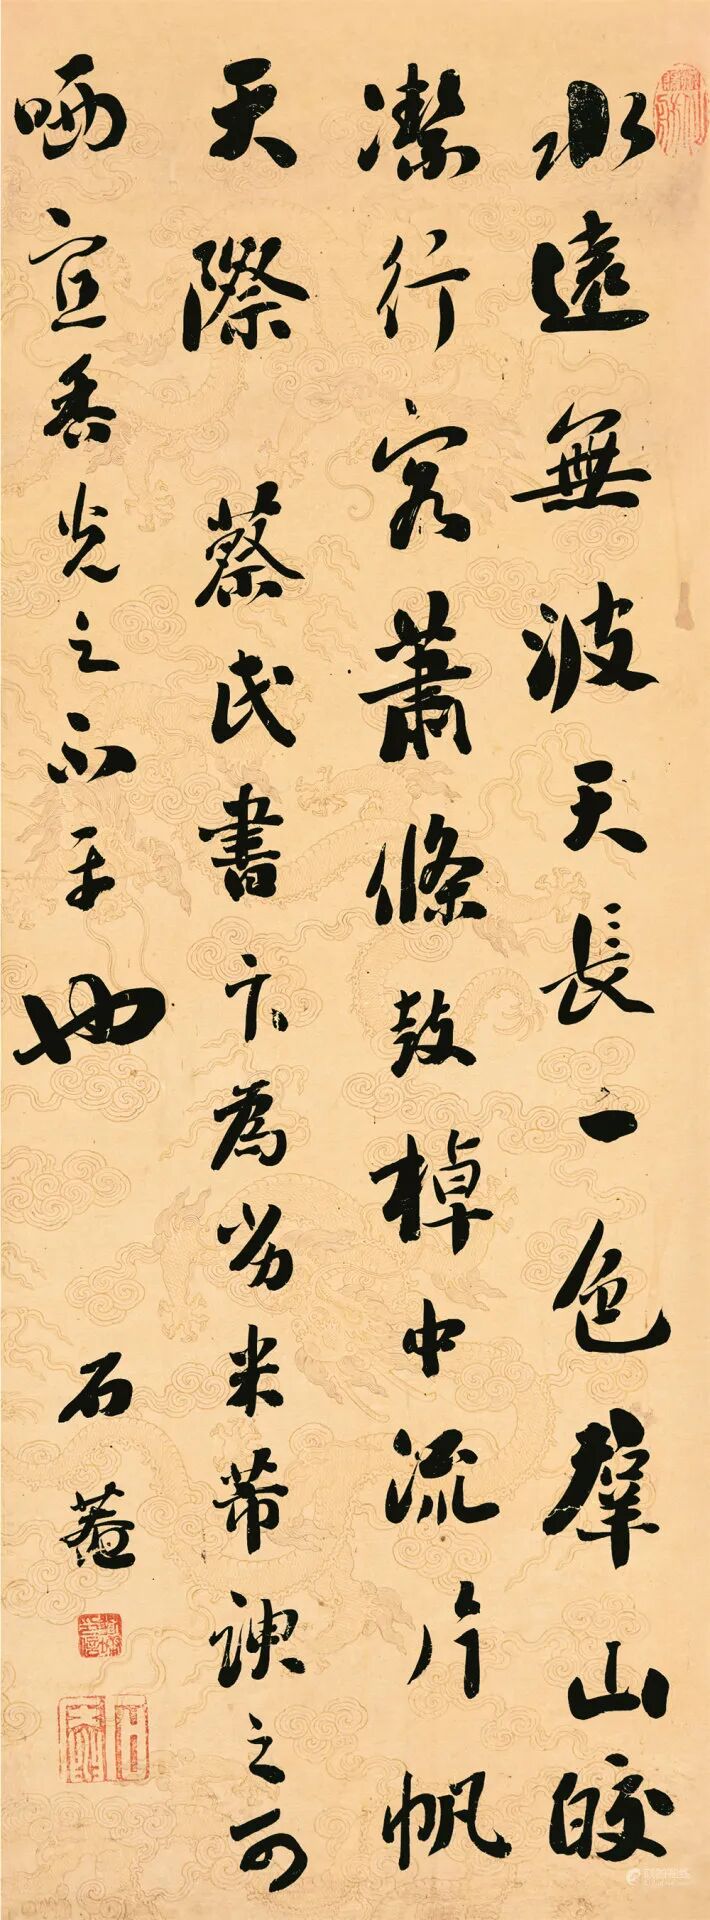 水遠無波天長一色羣山皎
潔行客蕭條鼓棹中流片帆
天際 蔡氏書卞為劣米芾諛之可
哂宜香光之不平也
石菴